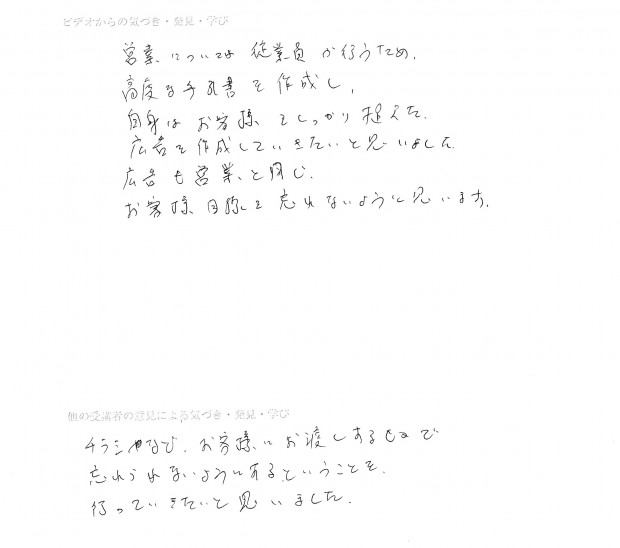 ビデオからの気づき・発見・学び
営業については従業員が行うため、
高度な手引書を作成し、
自身はお客様をしっかり捉えた、
広告を作成していきたいと思いました。
広告も営業と同じ、
お客様目線を忘れないように思います。
他の受講者の意見による気づき・発見・学び
チラシやなび、お客様にお渡しするもので
忘れられないようにするということを、
行っていきたいと思いました。